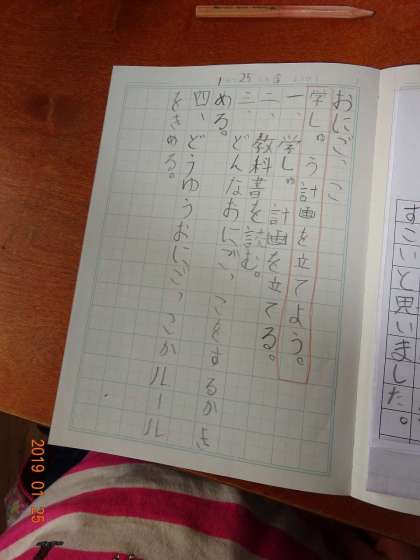 1 25 金
おにごっこ
学しゅう計画を立てよう。
一、学しゅ 計画を立てる。
二、教科書を読む。
三、どんなおにごっこをするかき
める。
四、どうゆうおにごっこかルール
をきめる。
すごいと思いました。
2019 01 25